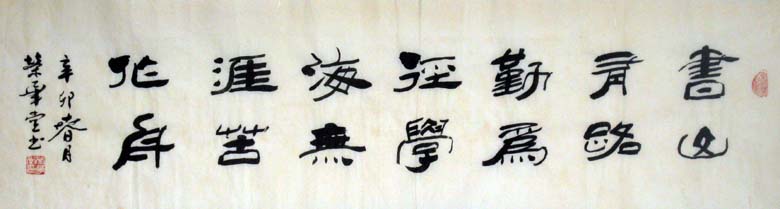 書山
有路
勤爲
徑學
海無
涯苦
作舟
辛卯春月
书